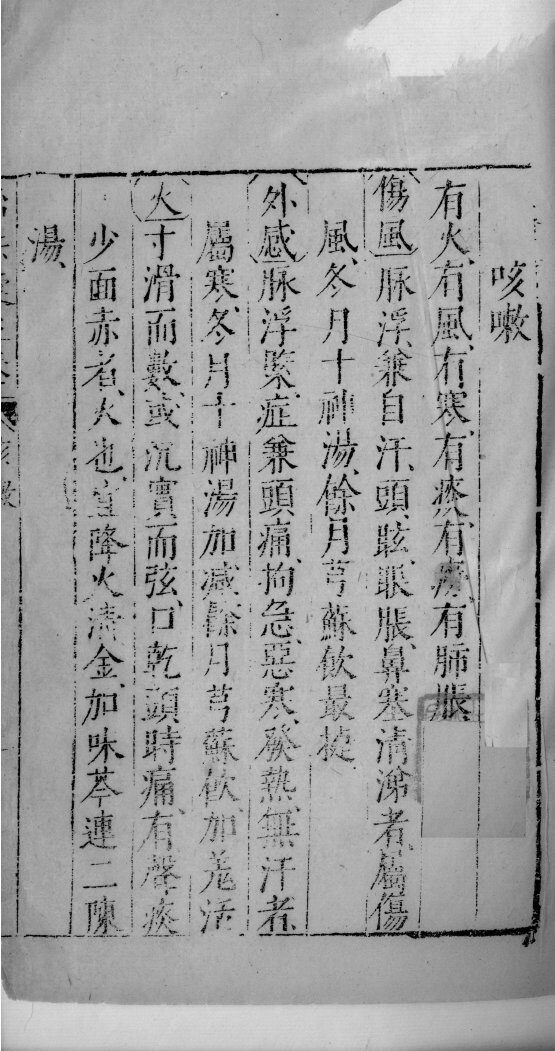 咳嗽
有火、有風、有寒、有痰、有癆、有肺脹、
傷風脉浮、兼自汗、頭眩、眼脹、鼻塞清涕者、屬傷
風、冬月十神湯、餘月芎蘇飲最㨗
外感脉浮緊、症兼頭痛、拘急、惡寒、發熱、無汗者、
屬寒、冬月十神湯加减、餘月芎蘇飲、加羌活
火寸滑而數、或沉實而弦、口乾、頭時痛、有聲痰
少面赤者、火也、宜降火清金、加味芩連二陳
湯、